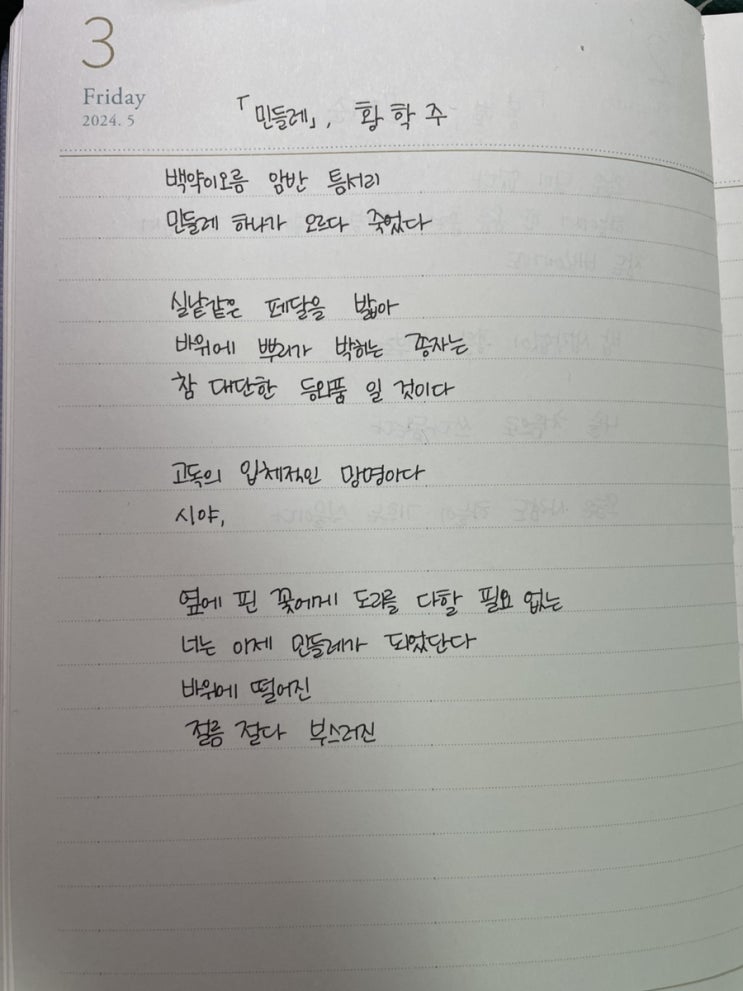 3
Friday
2024. 5
「민들레」, 황학주
백약이오름 암반 틈서리
민들레 하나가 오르다 죽었다
실낱같은 페달을 밟아
바위에 뿌리가 박히는 종자는
참 대단한 등외품 일 것이다
고독의 입체적인 망명아다
시야,
옆에 핀 꽃에게 도리를 다할 필요 없는
너는 이제 민들레가 되었단다
바위에 떨어진
절름 절다 부스러진